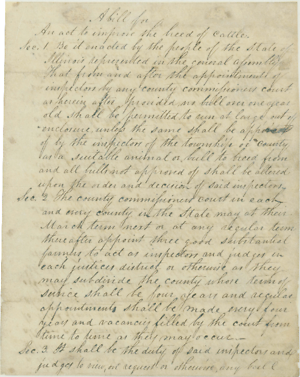 A bill for
An act to improve the breed of cattle.
Sec. 1 Be it enacted by the people of the State of
Illinois represented in the General Assembly
That from and after the appointment of
inspectors by any county commissioners court
as herein after provided no bull over one year
old shall be permitted to run at large out of
enclosure unless the same shall be approved
of by the inspectors of the township or County
as a suitable animal or bull to breed from
and all bulls not approved of shall be altered
upon the order and decision of said inspectors
Sec. 2 The county commissioners court in each
and every county in the State may at their
March term next or at any regular term
thereafter appoint three good substantial
farmers to act as inspectors and judges in
each justices district or otherwise as they
may subdivide the county whose term of
service shall be four years and regular
appointments shall be made every four
years and vacancies filled by the court from
time to time as they may occur
Sec. 3. It shall be the duty of said inspectors and
judges to view, at request or otherwise any bull